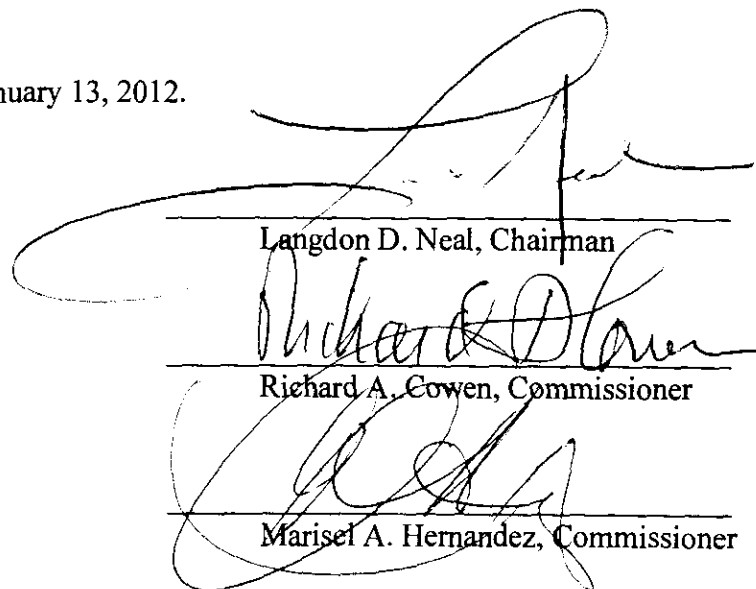 nuary 13, 2012.
Langdon D. Neal, Chairman
Richard A. Cowen
Richard A. Cowen, Commissioner
Marisel A. Hernandez, Commissioner